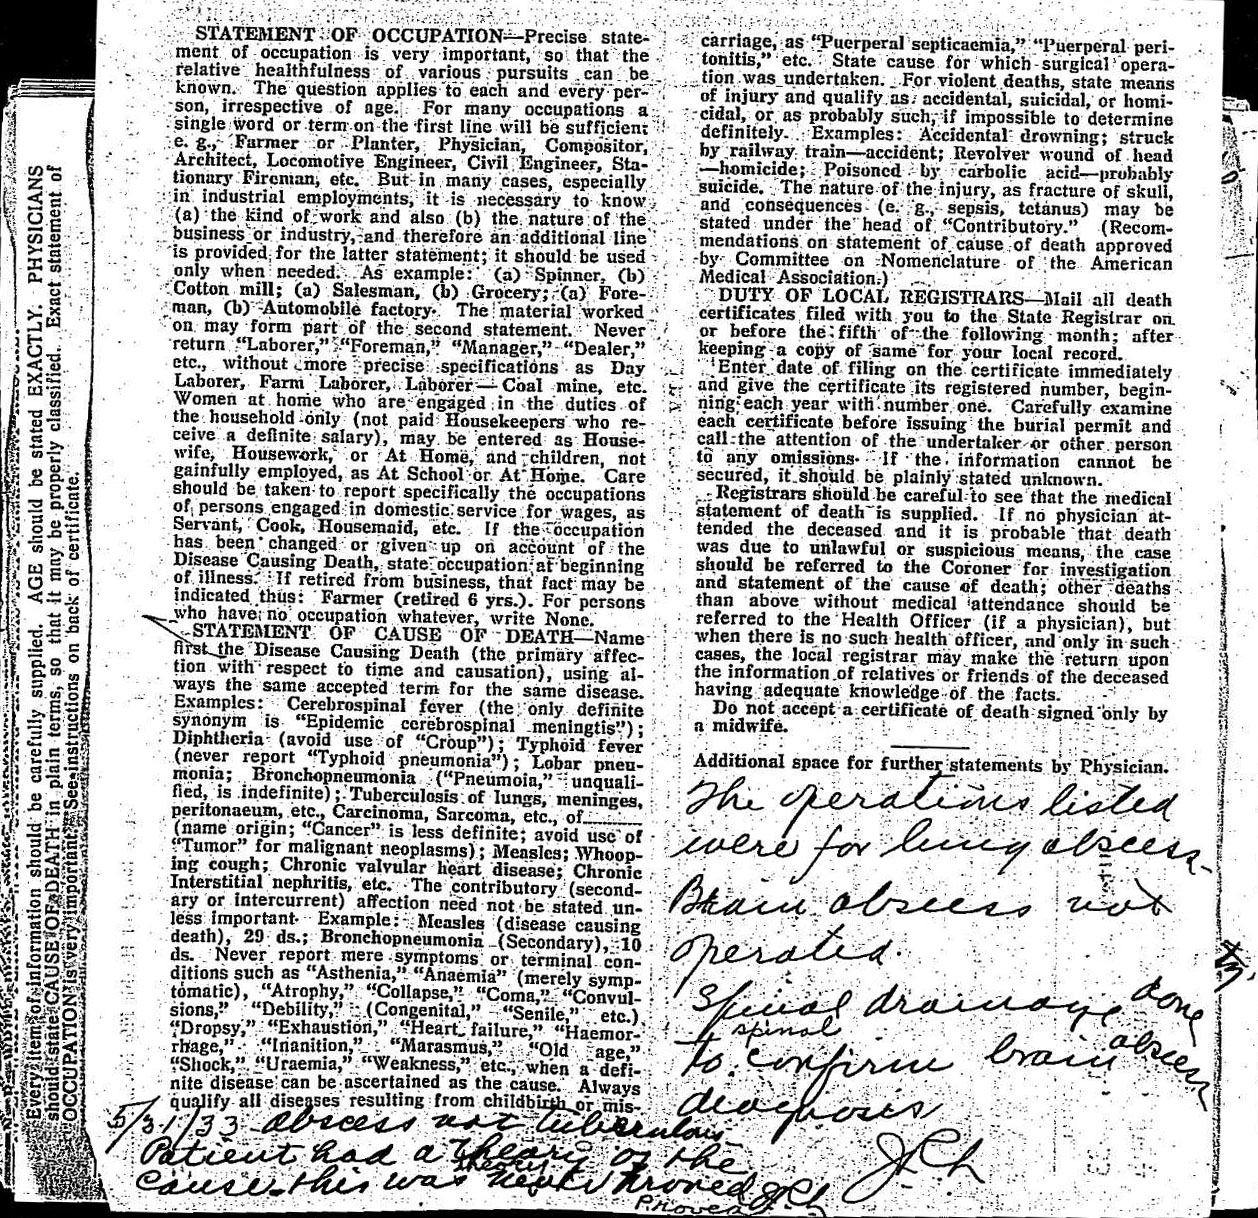 Every item of information should be carefully supplied. AGE should be stated EXACTLY. PHYSICIANS
should state CAUSE OF DEATH in plain terms, so that it may be properly classified. Exact statement of
OCCUPATION is very important. See instructions on back of certificate.
STATEMENT OF OCCUPATION—Precise state-
ment of occupation is very important, so that the
relative healthfulness of various pursuits can be
known. The question applies to each and every per-
son, irrespective of age. For many occupations a
single word or term on the first line will be sufficient
e. g., Farmer or Planter, Physician, Compositor,
Architect, Locomotive Engineer, Civil Engineer, Sta-
tionary Fireman, etc. But in many cases, especially
in industrial employments, it is necessary to know
(a) the kind of work and also (b) the nature of the
business or industry, and therefore an additional line
is provided for the latter statement; it should be used
only when needed. As example: (a) Spinner, (b)
Cotton mill; (a) Salesman, (b) Grocery; (a) Fore-
man, (b) Automobile factory. The material worked
on may form part of the second statement. Never
return "Laborer," "Foreman," "Manager," "Dealer,"
etc., without more precise specifications as Day
Laborer, Farm Laborer, Laborer—Coal mine, etc.
Women at home who are engaged in the duties of
the household only (not paid Housekeepers who re-
ceive a definite salary), may be entered as House-
wife, Housework, or At Home, and children, not
gainfully employed, as At School or At Home. Care
should be taken to report specifically the occupations
of persons engaged in domestic service for wages, as
Servant, Cook, Housemaid, etc. If the occupation
has been changed or given up on account of the
Disease Causing Death, state occupation at beginning
of illness. If retired from business, that fact may be
indicated thus: Farmer (retired 6 yrs.). For persons
who have no occupation whatever, write None.
STATEMENT OF CAUSE OF DEATH—Name
first the Disease Causing Death (the primary affec-
tion with respect to time and causation), using al-
ways the same accepted term for the same disease.
Examples: Cerebrospinal fever (the only definite
synonym is "Epidemic cerebrospinal meningtis");
Diphtheria (avoid use of "Croup"); Typhoid fever
(never report "Typhoid pneumonia"); Lobar pneu-
monia; Bronchopneumonia ("Pneumoia," unquali-
fied, is indefinite); Tuberculosis of lungs, meninges,
peritonaeum, etc., Carcinoma, Sarcoma, etc., of
(name origin; "Cancer" is less definite; avoid use of
"Tumor" for malignant neoplasms); Measles; Whoop-
ing cough; Chronic valvular heart disease; Chronic
Interstitial nephritis, etc. The contributory (second-
ary or intercurrent) affection need not be stated un-
less important. Example: Measles (disease causing
death), 29 ds.; Bronchopneumonia (Secondary), 10
ds. Never report mere symptoms or terminal con-
ditions such as "Asthenia," "Anaemia" (merely symp-
tomatic), "Atrophy," "Collapse," "Coma," "Convul-
sions," "Debility," (Congenital," "Senile," etc.)
"Dropsy," "Exhaustion," "Heart failure," "Haemor-
rhage," "Inanition," "Marasmus," "Old age,"
"Shock," "Uraemia," "Weakness," etc., when a defi-
nite disease can be ascertained as the cause. Always
qualify all diseases resulting from childbirth or mis-
5/31/33 abscess not tuberculous
Patient had a theory of the
theory
cause. this was never proved JRL
Proved
carriage, as "Puerperal septicaemia," "Puerperal peri-
tonitis," etc. State cause for which surgical opera-
tion was undertaken. For violent deaths, state means
of injury and qualify as accidental, suicidal, or homi-
cidal, or as probably such, if impossible to determine
definitely. Examples: Accidental drowning; struck
by railway train—accident; Revolver wound of head
—homicide; Poisoned by carbolic acid—probably
suicide. The nature of the injury, as fracture of skull,
and consequences (e. g., sepsis, tetanus) may be
stated under the head of "Contributory." (Recom-
mendations on statement of cause of death approved
by Committee on Nomenclature of the American
Medical Association.)
DUTY OF LOCAL REGISTRARS—Mail all death
certificates filed with you to the State Registrar on
or before the fifth of the following month; after
keeping a copy of same for your local record.
Enter date of filing on the certificate immediately
and give the certificate its registered number, begin-
ning each year with number one. Carefully examine
each certificate before issuing the burial permit and
call the attention of the undertaker or other person
to any omissions. If the information cannot be
secured, it should be plainly stated unknown.
Registrars should be careful to see that the medical
statement of death is supplied. If no physician at-
tended the deceased and it is probable that death
was due to unlawful or suspicious means, the case
should be referred to the Coroner for investigation
and statement of the cause of death; other deaths
than above without medical attendance should be
referred to the Health Officer (if a physician), but
when there is no such health officer, and only in such
cases, the local registrar may make the return upon
the information of relatives or friends of the deceased
having adequate knowledge of the facts.
Do not accept a certificate of death signed only by
a midwife.
Additional space for further statements by Physician.
The operations listed
were for lung abscess.
Brain abscess not
operated.
Spinal drainage done
spinal
to confirm brain abscess
diagnosis
JRL